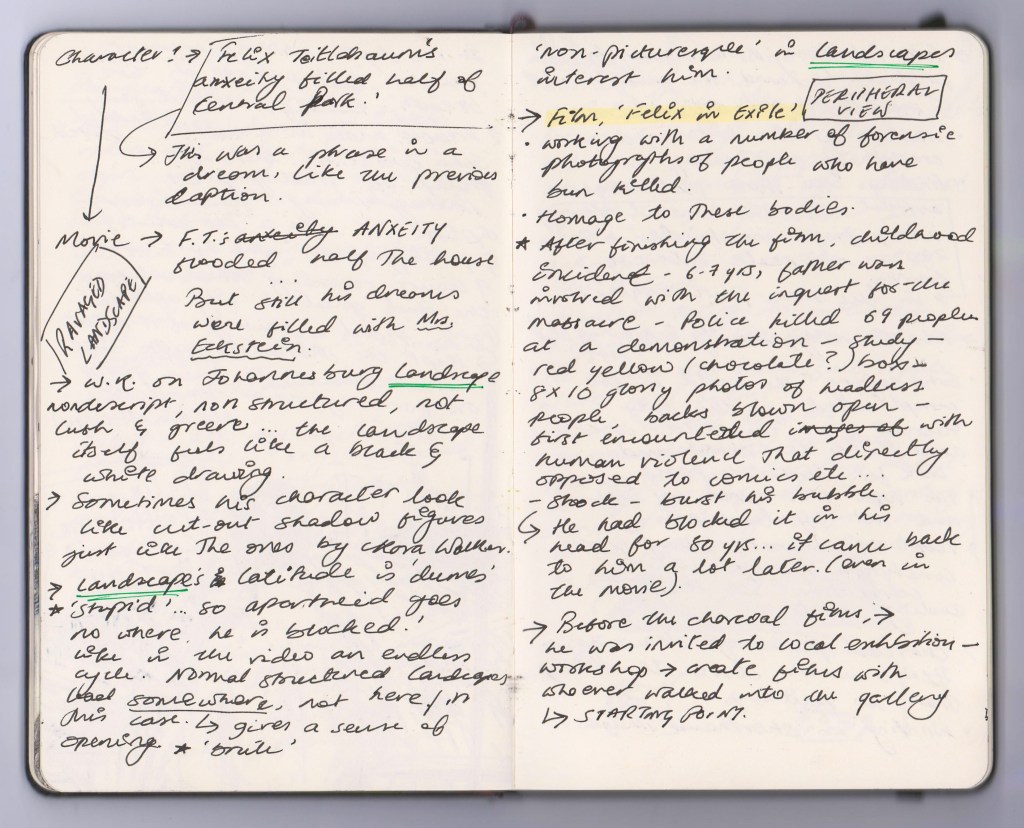 Character! → 'Felix Teitlebaum's
anxeity filled half of
Central Park.'
→ This was a phrase in a
dream, like the previous
caption.
Movie → F.T.'s anxeity ANXEITY
flooded half the house
...
But still his dreams
were filled with Mrs.
Eckstein.
RAVAGED
LANDSCAPE
→ W.K. on Johannesburg landscape
nondescript, non structured, not
lush & green... the landscape
itself feels like a black &
white drawing.
→ Sometimes his character look
like cut-out shadow figures
just like the ones by Kara Walker.
→ Landscape's latitude is 'dumes'
* 'stupid'... so apartheid goes
no where. he is blocked!
like in the video an endless
cycle. Normal structured landscapes
lead somewhere, not here/in
this case. ↳ gives a sense of
opening * 'brute'
'non-picturesque' in landscapes
interest him.
→ Film, 'Felix in Exile'
PERIPHERAL
VIEW
• working with a number of forensic
photographs of people who have
been killed.
• Homage to these bodies.
* After finishing the film, childhood
incident - 6-7 yrs, father was
involved with the inquest for the
massacre - Police killed 69 people
at a demonstration - study -
red yellow (chocolate?) box -
8x10 glossy photos of headless
people, backs blown open -
first encountered images of with
human violence that directly
opposed to comics etc...
- shock - burst his bubble.
↳ He had blocked it in his
head for 30 yrs... it came back
to him a lot later. (even in
the movie).
→ Before the charcoal films, →
he was invited to local exhibition -
workshop → create films with
whoever walked into the gallery
↳ STARTING POINT.